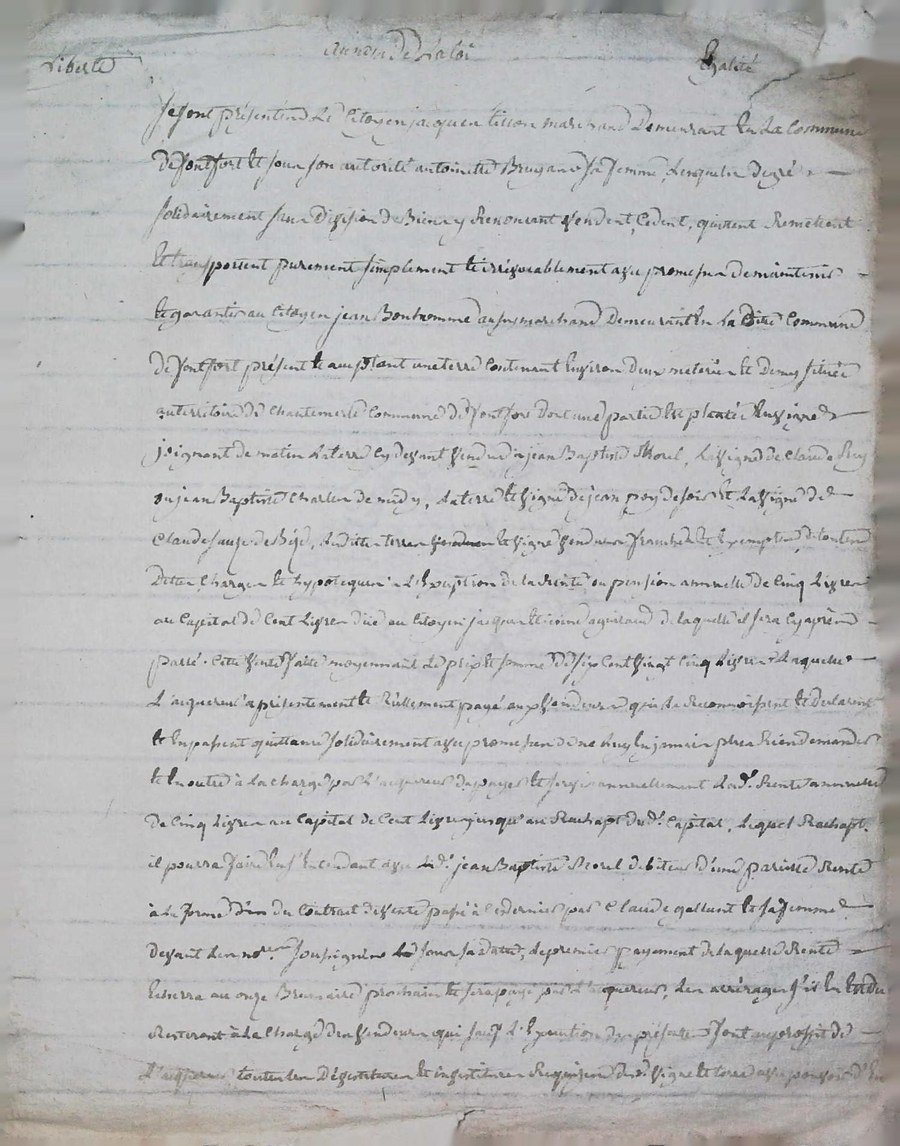 Liberté au nom De La loi Egalité
Se sont présentés Le Citoyen jacques tisson marchand Demeurant En La Commune
De Montfort Et sous son autorité antoinette Bruyand Sa femme, Lesquels De gré
Solidairement sans Division de Biens y Renoncant Vendent, Cedent, quittent Remettent
Et transportent purement simplement Et irrévocablement avec promesse De maintenir
Et garantir au Citoyen jean Bonhomme aussy marchand Demeurant En La Ditte Commune
De présent Et acceptant une terre Contenant Environ Deux meterées Et Demy située
au territoire De Chantemerle Commune De Dont une partie Est plantée En Vigne
joignant de matin La terre Cy Devant Vendue à jean Baptiste Morel, La Vigne De Claude
ou jean Baptiste Charles de midy, La terre Et Vigne De jean De soir Et La Vigne De
Claude De Bize, Lesdittes terres Et Vigne Vendues franches Et Exemptes De toutes
Dettes Charges Et hypoteques à L'Exception De La Rente ou pension annuelle De Cinq Livres
au Capital De Cent Livres Due au Citoyen jacques Etienne De laquelle il sera Cy après
parlé. Cette Vente faite moyennant Le prix Et somme De six Cent Vingt Cinq Livres Laquelle
L'acquereur a présentement Et Réellement payé aux Vendeurs qui Le Reconnoissent Et Declarent
Et En passent quittance solidairement avec promesse De ne Luy En jamais plus Rien Demander
Et En outre à La Charge par L'acquereur De payer Et servir annuellement Lad. Rente annuelle
De Cinq Livres au Capital De Cent Livres jusqu'au Rachapt Dud. Capital, Lequel Rachapt
il pourra faire En S'Entendant avec Led. jean Baptiste Morel Debiteur D'une pareille Rente
à La forme Du Contract De Vente passé à Ce Dernier par Claude gallant Et Sa femme
Devant Les no.res soussignés Le jour Sa Datte, Le premier payement De laquelle Rente
Echerra au onze Brumaire prochain Et sera payé par L'acquereur, Les arrérages S'il En Est Du
Resteront à La Charge Des Vendeurs qui sauf L'Execution Des présentes Sont au profit De
L'acquereur toutes Les Devestitures Et investitures Requises Desd. Vigne Et terre avec pouvoir D'En